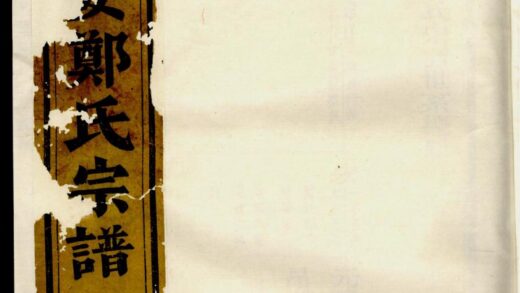 鄭氏宗譜